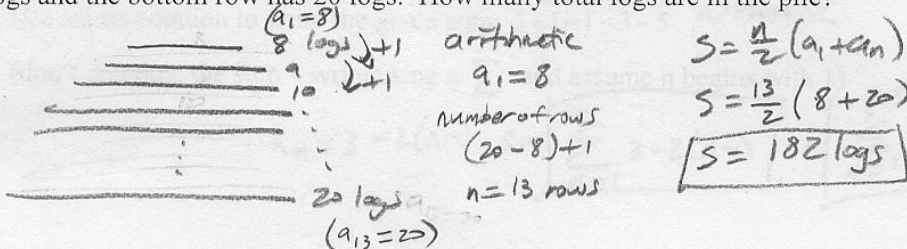 gs and the bottom row has 20 logs. How many total logs are in the pile?
(a₁=8)
8 logs
+1
9
+1
10
20 logs
(a₁₃=20)
arithmetic
a₁=8
number of rows
(20-8)+1
n=13 rows
S= n/2 (a₁+aₙ)
S= 13/2 (8+20)
S= 182 logs